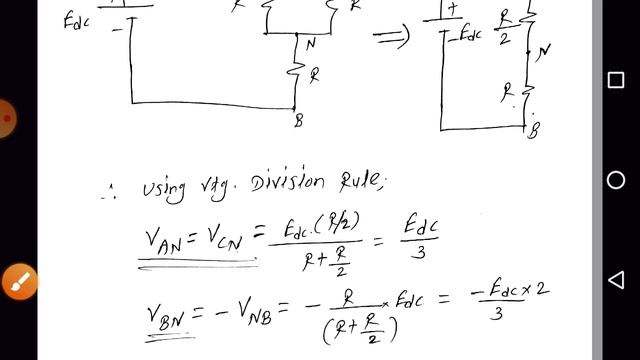 + R R +
Edc - N => - Edc R/2 N
R R
B B
∴ Using Vtg. Division Rule;
V_AN = V_CN = Edc.(R/2) / (R + R/2) = Edc/3
V_BN = - V_NB = - R/(R + R/2) × Edc = -Edc × 2/3